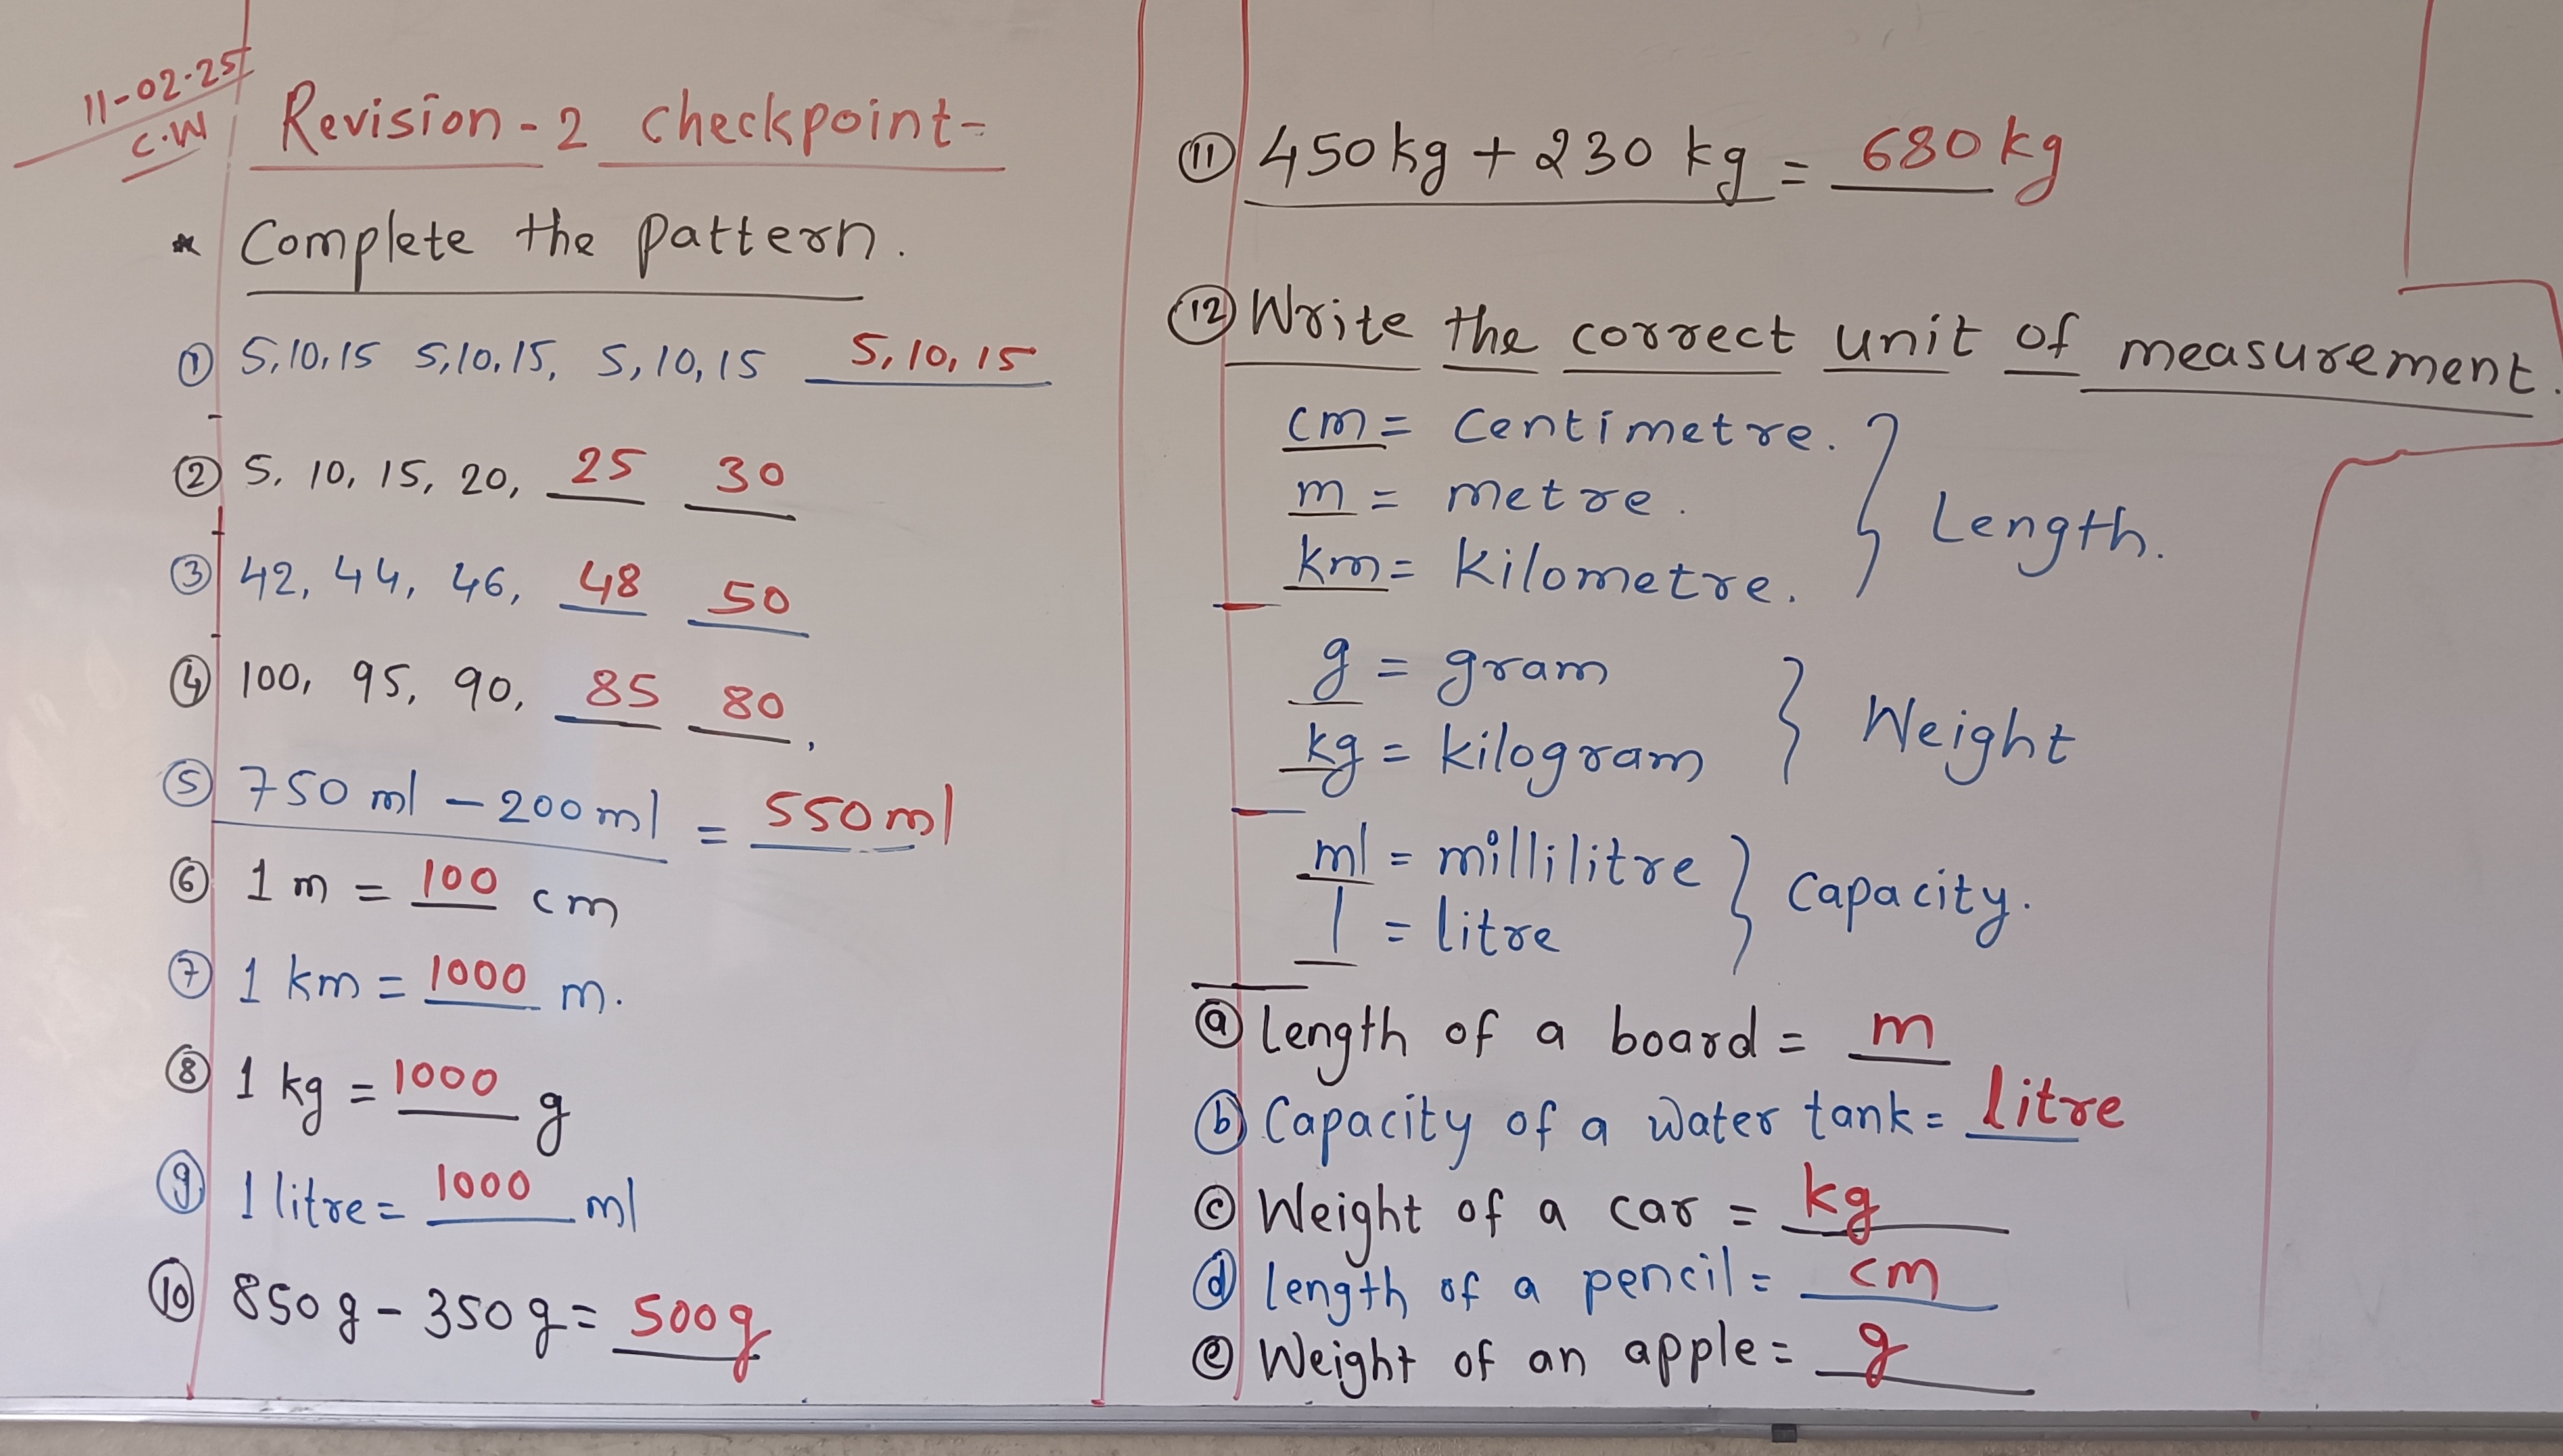 11-02-25
C.W
Revision-2 checkpoint-
* Complete the pattern.
① 5,10,15 5,10,15, 5,10,15 5,10,15
② 5, 10, 15, 20, 25 30
③ 42, 44, 46, 48 50
④ 100, 95, 90, 85 80,
⑤ 750 ml - 200 ml = 550 ml
⑥ 1 m = 100 cm
⑦ 1 km = 1000 m.
⑧ 1 kg = 1000 g
⑨ 1 litre = 1000 ml
⑩ 850 g - 350 g = 500g
⑪ 450 kg + 230 kg = 680 kg
⑫ Write the correct unit of measurement.
cm = Centimetre.
m = metre.
km = kilometre.
Length.
g = gram
kg = kilogram
Weight
ml = millilitre
l = litre
Capacity.
ⓐ length of a board = m
ⓑ Capacity of a water tank = litre
ⓒ Weight of a car = kg
ⓓ length of a pencil = cm
ⓔ Weight of an apple = g